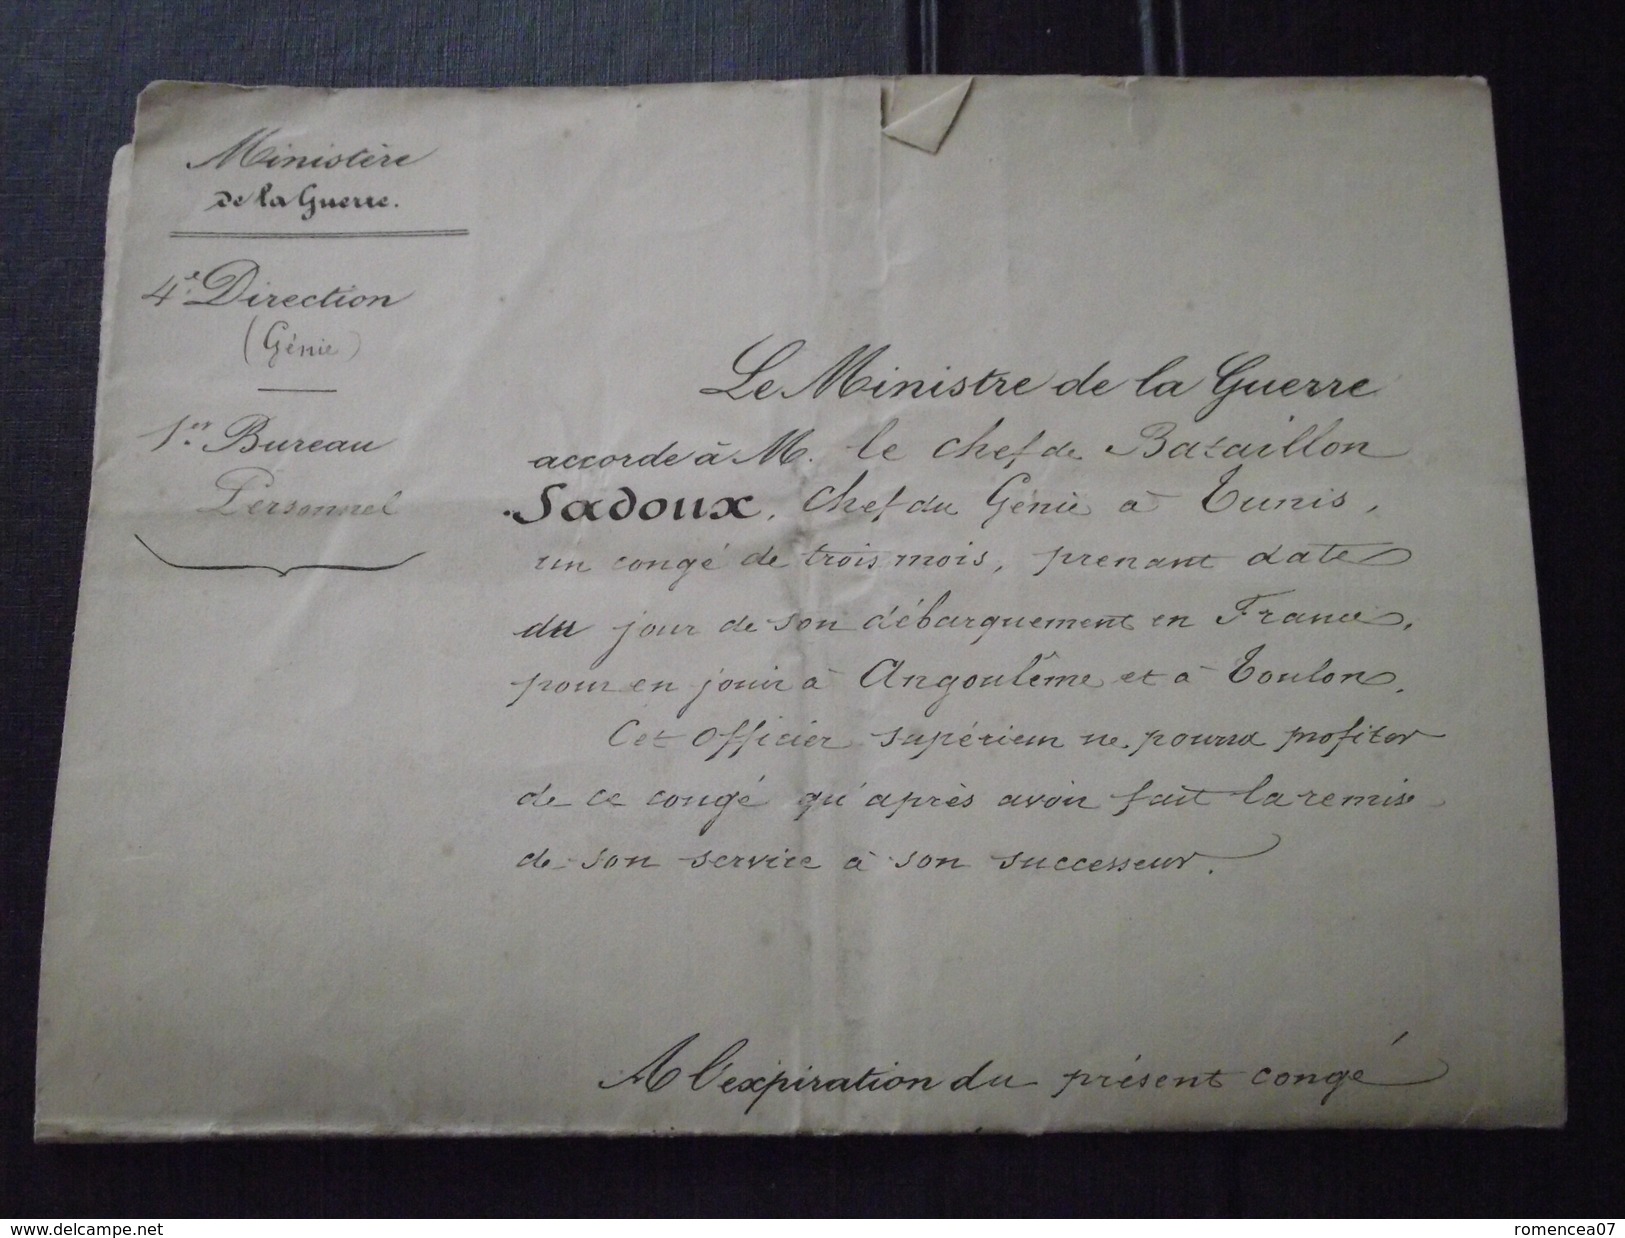 Ministère
de la Guerre.
4e Direction
(Génie)
1er Bureau
Personnel
Le Ministre de la Guerre
accorde à M. le Chef de Bataillon
Sadoux, Chef du Génie à Tunis,
un congé de trois mois, prenant date
du jour de son débarquement en France,
pour en jouir à Angoulême et à Toulon.
Cet Officier supérieur ne pourra profiter
de ce congé qu'après avoir fait la remise
de son service à son successeur.
A l'expiration du présent congé
www.delcampe.net
romencea07